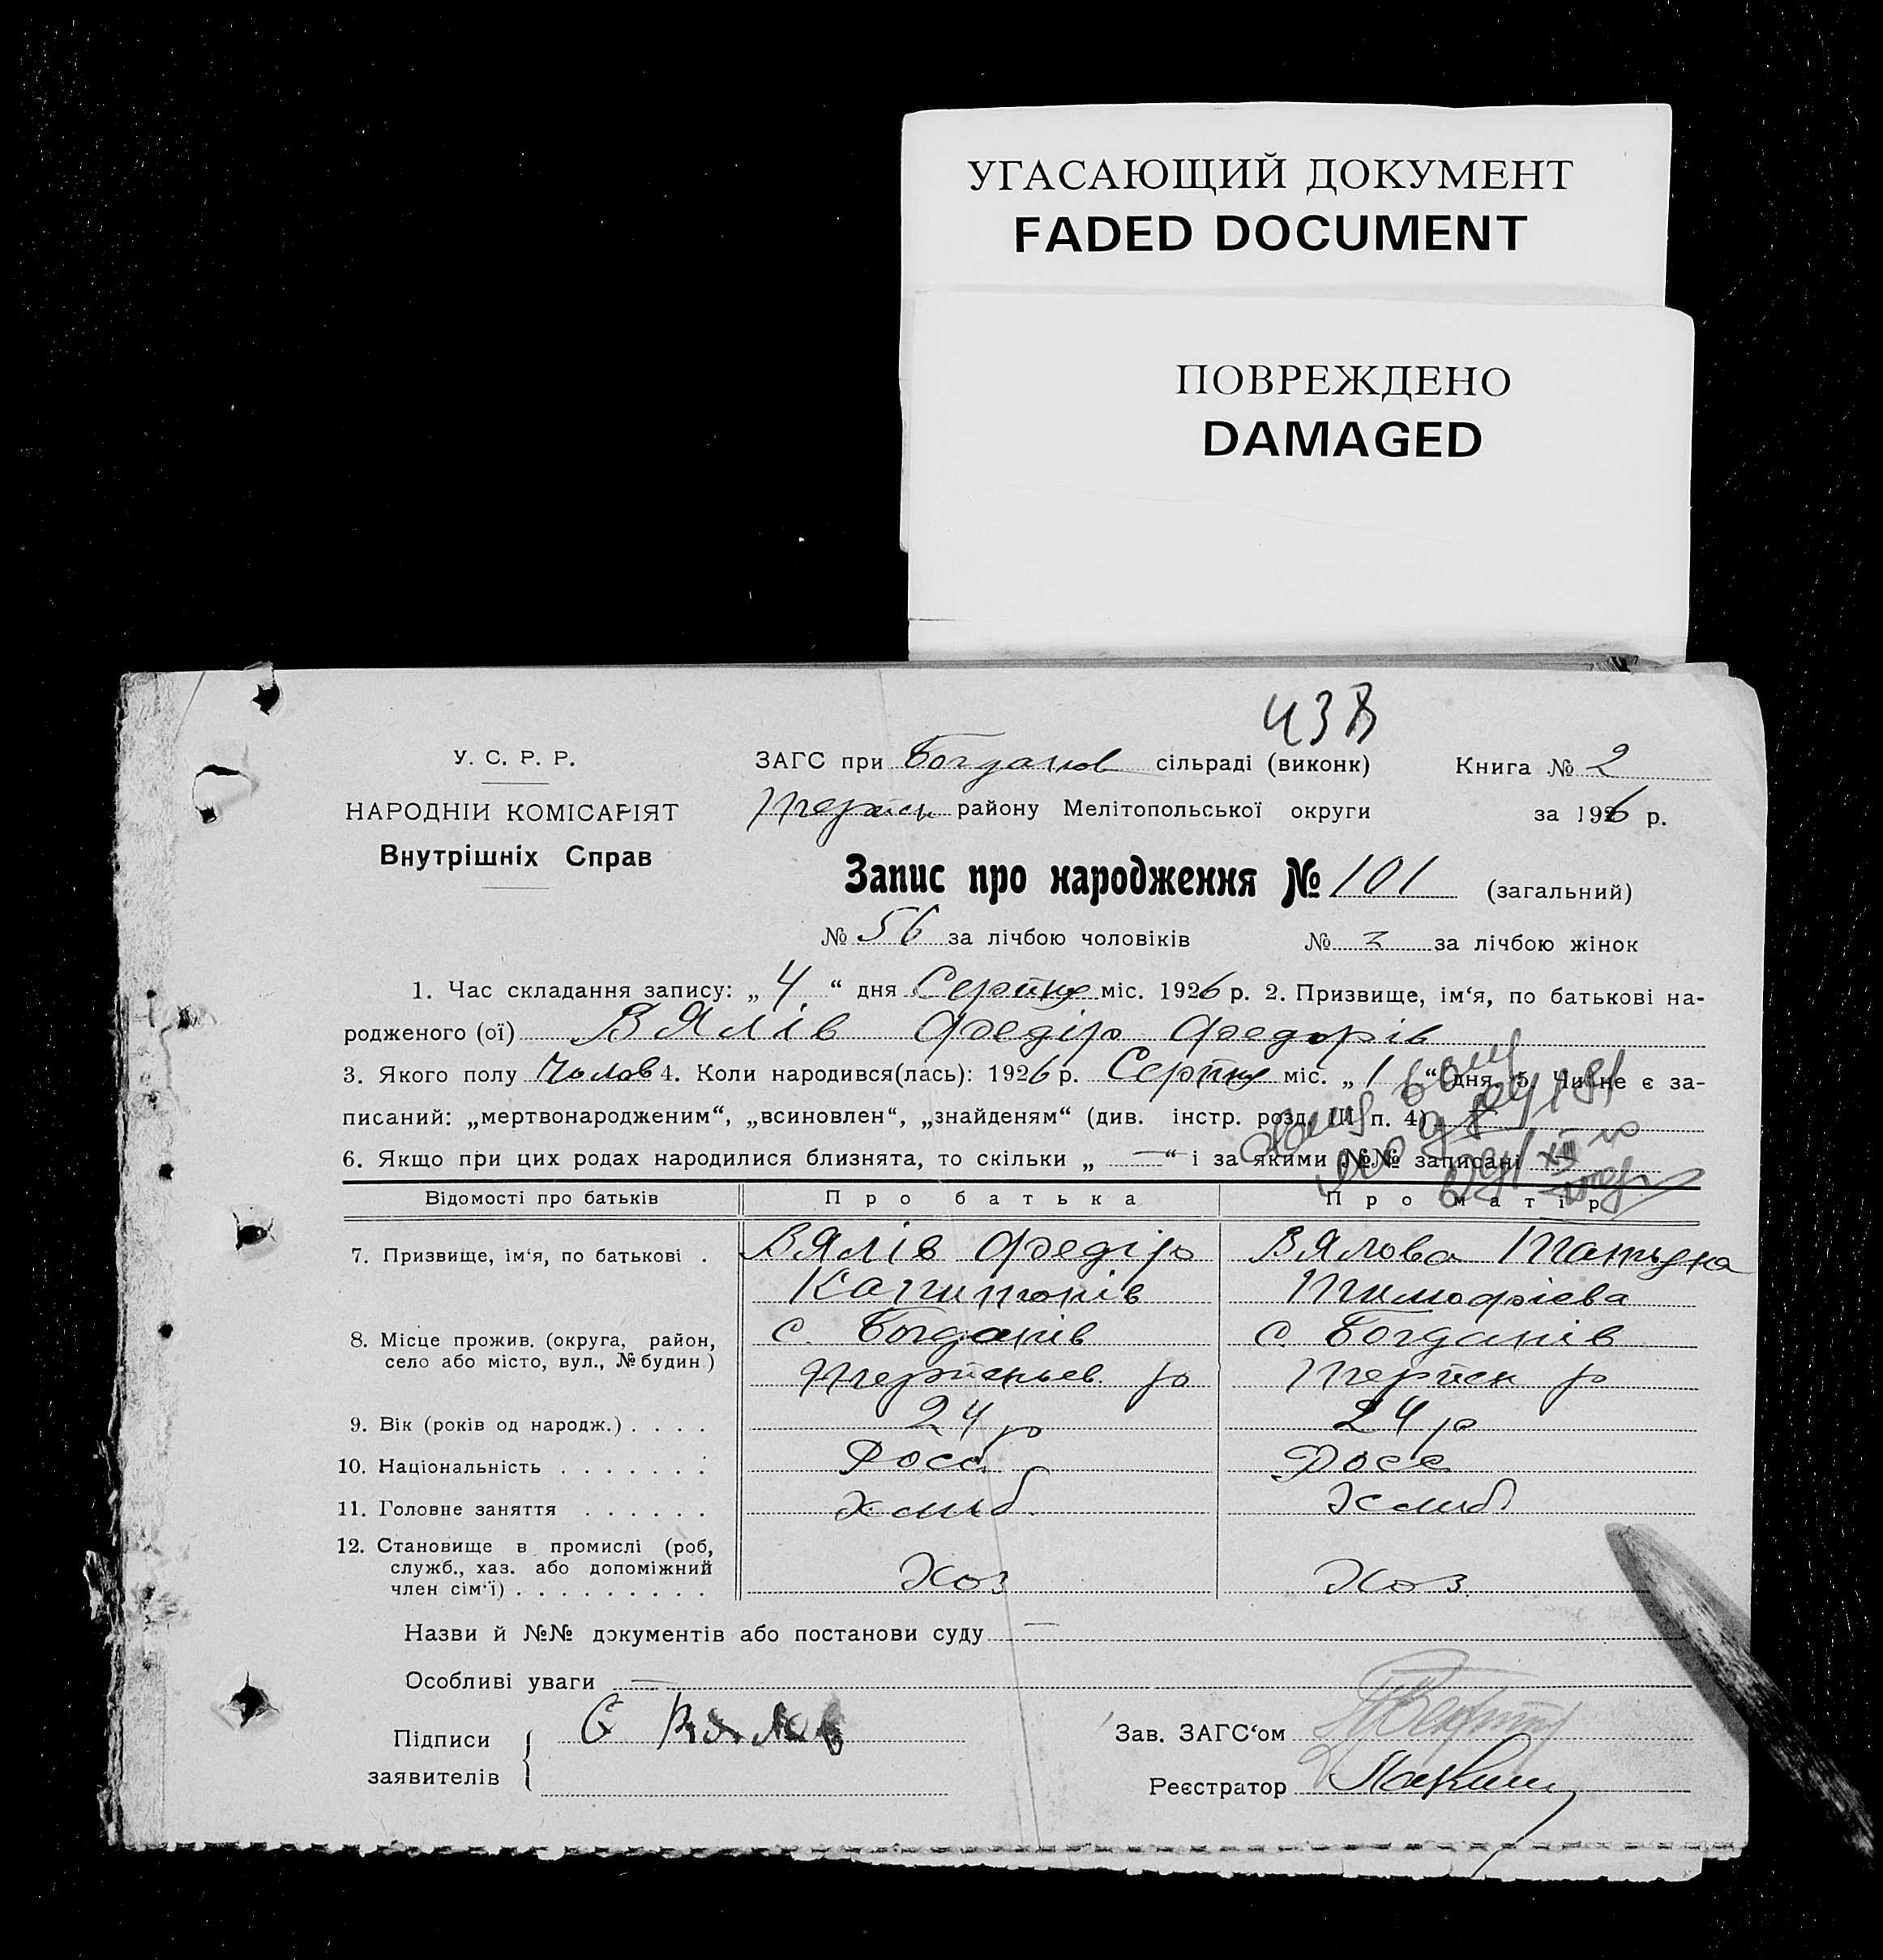 УГАСАЮЩИЙ ДОКУМЕНТ
FADED DOCUMENT
ПОВРЕЖДЕНО
DAMAGED
У. С. Р. Р.
НАРОДНІЙ КОМІСАРІЯТ
Внутрішніх Справ
ЗАГС при Богданов сільраді (виконк)
району Мелітопольської округи
Книга № 2
за 1926 р.
Запис про народження № 101 (загальний)
№ 56 за лічбою чоловіків № за лічбою жінок
1. Час складання запису: „ 4 “ дня Серпня міс. 1926 р. 2. Призвище, ім‘я, по батькові на-
родженого (ої) Вялів Федір Федорів
3. Якого полу Чолов 4. Коли народився(лась): 1926 р. Серпня міс. „ 1 “ дня. 5. Чи не є за-
писаний: „мертвонародженим“, „всиновлен“, „знайденям“ (див. інстр. розд. III п. 4)
6. Якщо при цих родах народилися близнята, то скільки „ — “ і за якими №№ записані
Відомості про батьків Про батька Про матір
7. Призвище, ім‘я, по батькові . Вялів Федір Вялова Татьяна
Капитонів Тимофієва
8. Місце прожив. (округа, район, с. Богданів с. Богданів
село або місто, вул., № будин.) р р
9. Вік (років од народж.) . . . . 24 р 24 р
10. Національність . . . . . . . Росс Росс
11. Головне заняття . . . . . . Хліб Хліб
12. Становище в промислі (роб,
служб., хаз. або допоміжний Хоз Хоз
член сім‘ї) . . . . . . . . .
Назви й №№ документів або постанови суду —
Особливі уваги —
Підписи
заявителів
Зав. ЗАГС‘ом
Реєстратор